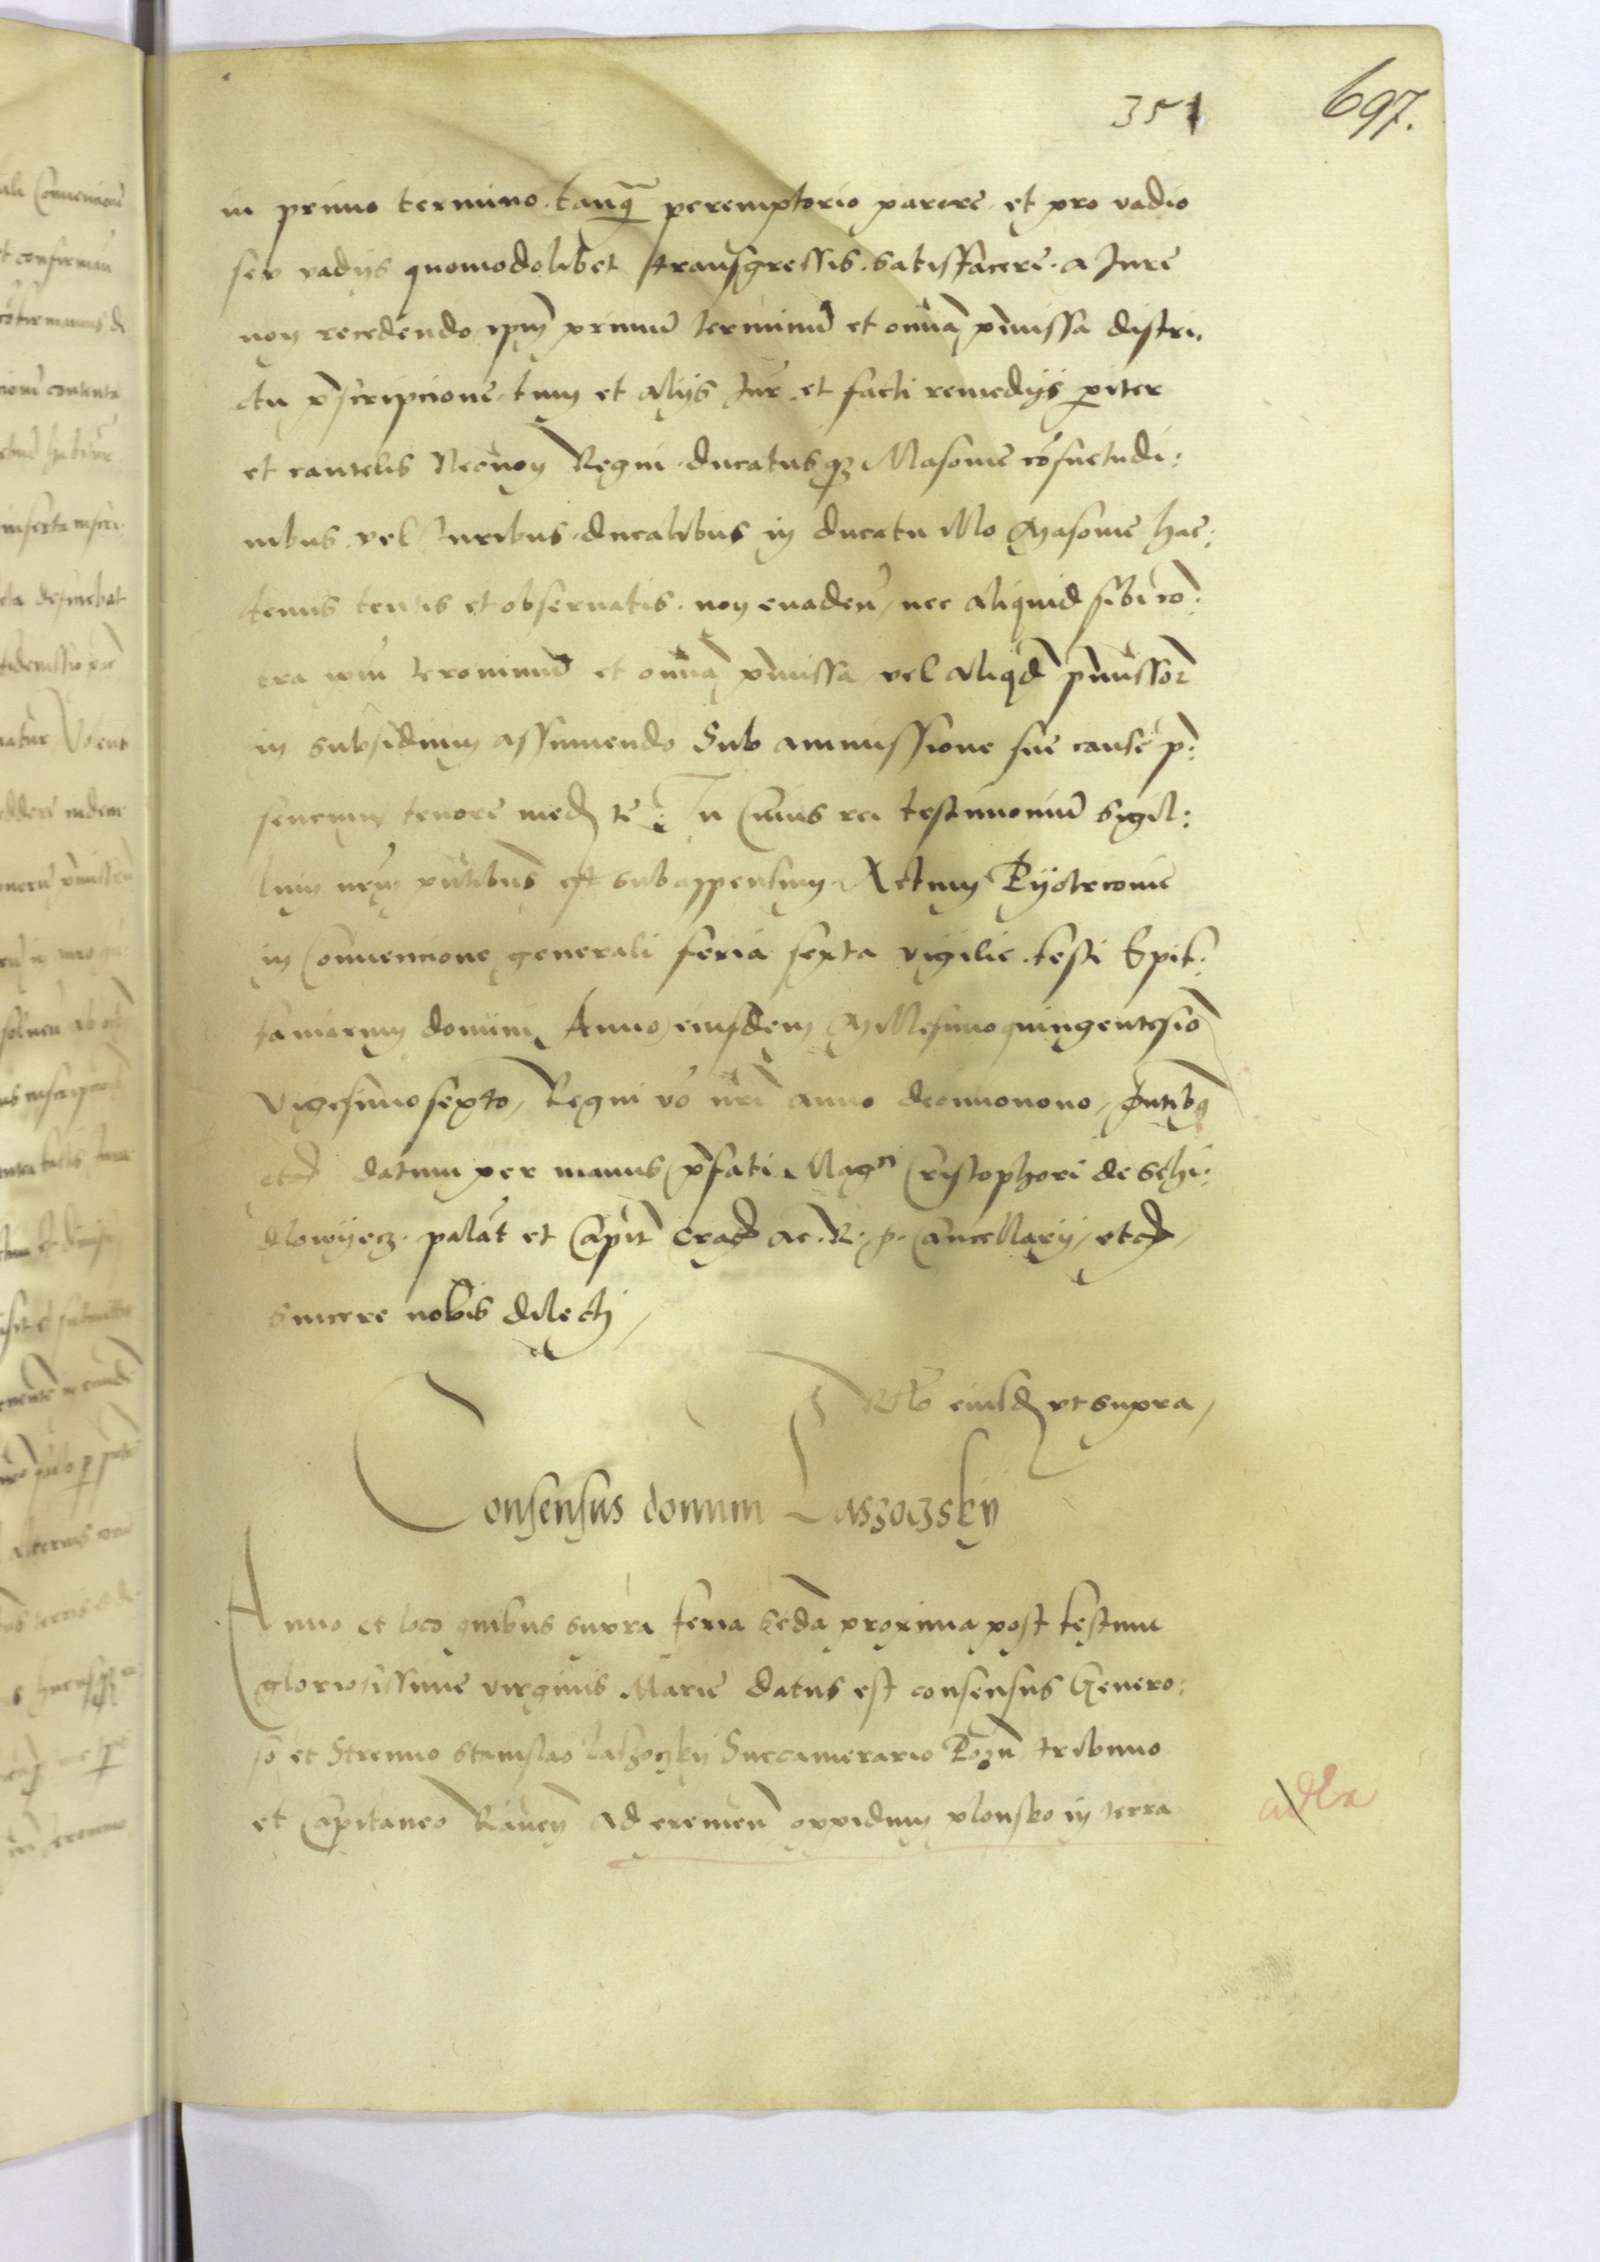 351 697.
in primo termino tanq̃ peremptorio parere et pro vadio
seu vadijs quomodolibet transgressis satisfacere a Jure
non recedendo ip̃m primũ terminũ et om̃ia p̃missa distri,
ctu p̃scripcione tum et alijs Jur̃ et facti remedijs p̱iter
et cautelis Necnon Regni ducatusqʒ Masovie cõsuetudi:
nibus vel Juribus ducalibus in ducatu illo Masovie hac:
tenus tentis et observatis non evadeñ nec aliquid sibi cõ:
tra ip̃m terminũ et om̃ia p̃missa vel aliqd̃ p̃missoꝝ
in subsidium assumendo Sub amissione sue cause p̃:
sencium tenore med̃ tẽ In Cuius rei testimoniũ sigil:
lum nr̃m p̃ntibus est subappensum Actum Pyotrcovie
in Convencione generali feria sexta vigilie festi Epif:
faniarum domini Anno eiusdem Millesimo quingentesiõ
Vigesimosexto, Regni võ nri anno decimonono, p̃ntibꝰ
etc̃ datum per manus p̃fati Magci Cristophori de Schi:
dlowyecz palat̃ et Capit̃ Crac̃ ac R. p. Cancellarij, etc̃,
sincere nobis dilecti,
Rlõ eiusd̃ ut supra,
Consensus domini Laszoczsky
Anno et loco quibus supra feria secd̃a proxima post festum
gloriosissime virginis Marie datus est consensus Genero:
so et Strenuo Stanislao Laszoczky Succamerario Pozñ tribuno
et Capitaneo Raveñ ad eximeñ oppidum plonsko in terra